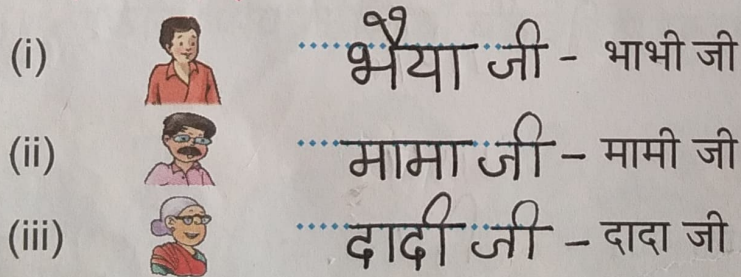 (i) भैया जी - भाभी जी
(ii) मामा जी - मामी जी
(iii) दादी जी - दादा जी